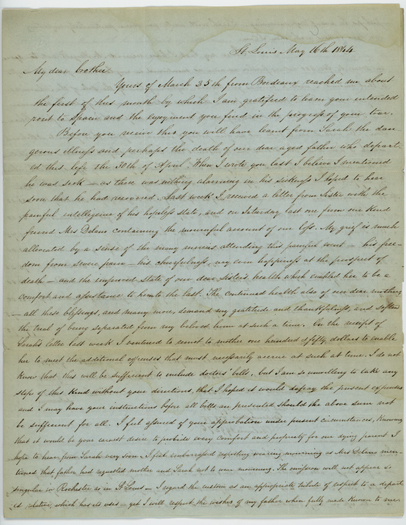 St. Louis May 16th 1844
My dear brother
Yours of March 25th from Bordeaux reached me about
the first of this month by which I am gratified to learn your intended
rout to Spain and the enjoyment you find in the progress of your tour.
Before you receive this you will have learnt from Sarah the dan-
gerous illness and perhaps the death of our dear aged father who depart-
ed this life the 30th of April. When I wrote you last I believe I mentioned
he was sick – as there was nothing alarming in his sickness I hoped to have
soon that he had recovered. Last week I received a letter from Sister with the
painful intelligence of his hopeless state, and on Saturday last one from our kind
friend Mrs containing the mournful account of our loss. My grief is much
alleviated by a sense of the many mercies attending this painful event – his free-
dom from severe pain – his cheerfulness, nay even happiness at the prospect of
death – and the improved state of our dear Sister's health which enabled her to be a
comfort and assistance to him to the last. The continued health also of our dear mother
– all these blessings, and many more, demand my gratitude and thankfulness, and soften
the trial of being separated from my beloved home at such a time. On the receipt of
Sarah's letter last week I to mother one hundred & fifty dollars to enable
her to meet the additional expenses that must necessarily occur at such a time. I do not
know that this will be sufficient to include doctors' bills, but I am so unwilling to take any
step of this kind without your directions, that I hoped it would defray the present expenses
and I may have your instructions before all bills are presented should the above sum not
be sufficient for all. I feel assured of your approbation under present circumstances, knowing
that it would be your desire to provide every comfort and propriety for our dying parent. I
hope to hear from Sarah very soon. I felt embarrassed respecting mourning as Mrs men-
tioned that father had requested mother and Sarah not to wear mourning. The will not appear so
singular in Rochester as in St Louis – I regard the custom as an appropriate tribute of respect to a depart-
ed relative, which has its uses – yet I will respect the wishes of my father when fully made known to me